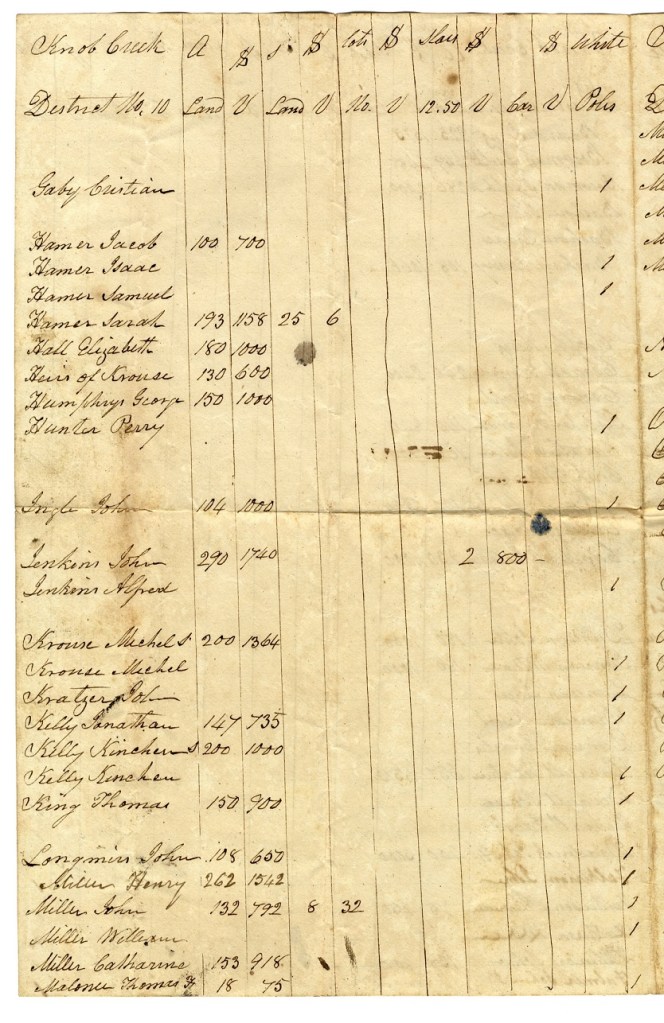 Knob Creek A $ s $ lots $ slaves $ $ White
District No. 10 Land V Land V No. V 12.50 V Car V Poles
Gaby Cristian 1
Hamer Jacob 100 700
Hamer Isaac 1
Hamer Samuel 1
Hamer Sarah 193 1158 25 6
Hall Elizabeth 180 1000
Heirs of Krouse 130 600
Humphrys George 150 1000
Hunter Perry 1
Ingle John 104 1000 1
Jenkins John 290 1740 2 800 -
Jenkins Alfred 1
Krouse Michel S 200 1364
Krouse Michel 1
Kratzer John 1
Kelly Jonathan 147 735 1
Kelly Kinchen S 200 1000
Kelly Kinchen 1
King Thomas 150 900 1
Longmire John 108 650 1
Miller Henry 262 1542 1
Miller John 132 792 8 32 1
Miller William 1
Miller Catharine 153 918
Malonee Thomas F 18 75 1